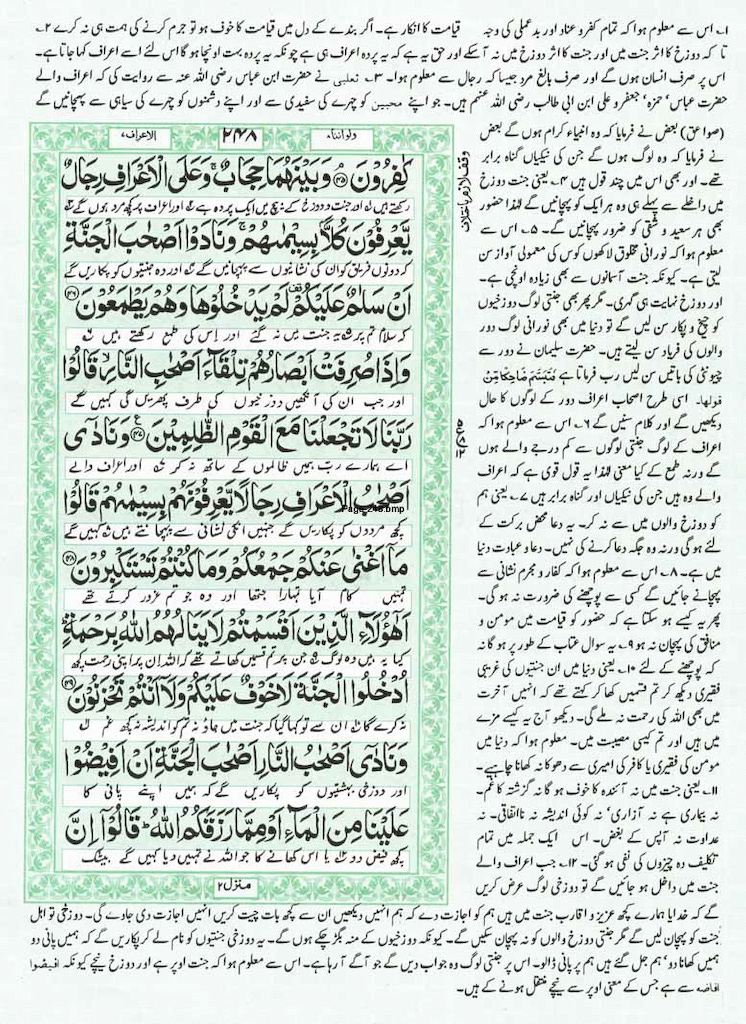 ۱۔ اس سے معلوم ہوا کہ تمام کفر و عناد اور بدعملی کی وجہ قیامت کا انکار ہے۔ اگر بندے کے دل میں قیامت کا خوف ہو تو جرم کرنے کی ہمت ہی نہ کرے ۲۔
تا کہ دوزخ کا اثر جنت میں اور جنت کا اثر دوزخ میں نہ آسکے اور حق یہ ہے کہ یہ پردہ اعراف ہی ہے چونکہ یہ پردہ بہت اونچا ہو گا اس لئے اسے اعراف کہا جاتا ہے۔
اس پر صرف انسان ہوں گے اور صرف بالغ مرد جیسا کہ رجال سے معلوم ہوا۔ ۳۔ ثعلبی نے حضرت ابن عباس رضی اللہ عنہ سے روایت کی کہ اعراف والے
حضرت عباس' حمزہ' جعفر و علی ابن ابی طالب رضی اللہ عنہم ہیں۔ جو اپنے محبین کو چہرے کی سفیدی سے اور اپنے دشمنوں کو چہرے کی سیاہی سے پہچانیں گے
(صواعق) بعض نے فرمایا کہ وہ انبیاء کرام ہوں گے بعض
نے فرمایا کہ یہ وہ لوگ ہوں گے جن کی نیکیاں گناہ برابر
تھے۔ اور بھی اس میں چند قول ہیں ۴۔ یعنی جنت دوزخ
میں داخلے سے پہلے ہی وہ ہر ایک کو پہچانیں گے لہٰذا حضور
بھی ہر سعید و شقی کو ضرور پہچانیں گے۔ ۵۔ اس سے
معلوم ہوا کہ نورانی مخلوق لاکھوں کوس کی معمولی آواز سن
لیتی ہے۔ کیونکہ جنت آسمانوں سے بھی زیادہ اونچی ہے۔
اور دوزخ نہایت ہی گہری۔ مگر پھر بھی جنتی لوگ دوزخیوں
کو چیخ و پکار سن لیں گے تو دنیا میں بھی نورانی لوگ دور
والوں کی فریاد سن لیتے ہیں۔ حضرت سلیمان نے دور سے
چیونٹی کی باتیں سن لیں رب فرماتا ہے فَتَبَسَّمَ ضَاحِكًا مِّنْ
قولها۔ اسی طرح اصحاب اعراف دور کے لوگوں کا حال
دیکھیں گے اور کلام سنیں گے ۶۔ اس سے معلوم ہوا کہ
اعراف کے لوگ جنتی لوگوں سے کم درجے والے ہوں
گے ورنہ طمع کے کیا معنی لہٰذا یہ قول قوی ہے کہ اعراف
والے وہ ہیں جن کی نیکیاں اور گناہ برابر ہیں ۷۔ یعنی ہم
کو دوزخ والوں میں سے نہ کر۔ یہ دعا محض برکت کے
لئے ہو گی ورنہ وہ جگہ دعا کرنے کی نہیں۔ دعا و عبادت دنیا
میں ہے۔ ۸۔ اس سے معلوم ہوا کہ کفار و مجرم نشانی سے
پہچانے جائیں گے کسی سے پوچھنے کی ضرورت نہ ہو گی۔
پھر یہ کیسے ہو سکتا ہے کہ حضور کو قیامت میں مومن و
منافق کی پہچان نہ ہو ۹۔ یہ سوال عتاب کے طور پر ہو گا نہ
کہ پوچھنے کے لئے ۱۰۔ یعنی دنیا میں ان جنتیوں کی غریبی
فقیری دیکھ کر تم قسمیں کھا کر کہتے تھے کہ انہیں آخرت
میں بھی اللہ کی رحمت نہ ملے گی۔ دیکھو آج یہ کیسے مزے
میں ہیں اور تم کیسی مصیبت میں۔ معلوم ہوا کہ دنیا میں
مومن کی فقیری یا کافر کی امیری سے دھوکا نہ کھانا چاہیے۔
۱۱۔ یعنی جنت میں نہ آئندہ کا خوف ہو گا نہ گزشتہ کا غم۔
نہ بیماری ہے نہ آزاری' نہ کوئی اندیشہ نہ نااتفاقی۔ نہ
عداوت نہ آپس کے بغض۔ اس ایک جملہ میں تمام
تکلیف دہ چیزوں کی نفی ہو گئی۔ ۱۲۔ جب اعراف والے
جنت میں داخل ہو جائیں گے تو دوزخی لوگ عرض کریں
ولواننا۸ ۲۴۸ الاعراف۷
كٰفِرُوْنَ ﴿۴۵﴾ وَبَيْنَهُمَا حِجَابٌ ۚ وَعَلَى الْاَعْرَافِ رِجَالٌ
رکھتے ہیں اور جنت و دوزخ کے بیچ میں ایک پردہ ہے اور اعراف پر کچھ مرد ہوں گے
يَّعْرِفُوْنَ كُلًّاۢ بِسِيْمٰىهُمْ ۚ وَنَادَوْا اَصْحٰبَ الْجَنَّةِ
کہ دونوں فریق کو ان کی نشانیوں سے پہچانیں گے اور وہ جنتیوں کو پکاریں گے
اَنْ سَلٰمٌ عَلَيْكُمْ ۟ لَمْ يَدْخُلُوْهَا وَهُمْ يَطْمَعُوْنَ ﴿۴۶﴾
کہ سلام تم پر یہ جنت میں نہ گئے اور اس کی طمع رکھتے ہیں
وَاِذَا صُرِفَتْ اَبْصَارُهُمْ تِلْقَآءَ اَصْحٰبِ النَّارِ ۙ قَالُوْا
اور جب ان کی آنکھیں دوزخیوں کی طرف پھریں گی کہیں گے
رَبَّنَا لَا تَجْعَلْنَا مَعَ الْقَوْمِ الظّٰلِمِيْنَ ﴿۴۷﴾ وَنَادٰٓى
اے ہمارے رب ہمیں ظالموں کے ساتھ نہ کر اور اعراف والے
اَصْحٰبُ الْاَعْرَافِ رِجَالًا يَّعْرِفُوْنَهُمْ بِسِيْمٰىهُمْ قَالُوْا
Page 248.bmp
کچھ مردوں کو پکاریں گے جنہیں انکی نشانی سے پہچانتے ہیں کہیں گے
مَآ اَغْنٰى عَنْكُمْ جَمْعُكُمْ وَمَا كُنْتُمْ تَسْتَكْبِرُوْنَ ﴿۴۸﴾
تمہیں کیا کام آیا تمہارا جتھا اور وہ جو تم غرور کرتے تھے
اَهٰٓؤُلَآءِ الَّذِيْنَ اَقْسَمْتُمْ لَا يَنَالُهُمُ اللّٰهُ بِرَحْمَةٍ ؕ
کیا یہ ہیں وہ لوگ جن پر تم قسمیں کھاتے تھے کہ اللہ ان پر اپنی رحمت کچھ
اُدْخُلُوا الْجَنَّةَ لَا خَوْفٌ عَلَيْكُمْ وَلَآ اَنْتُمْ تَحْزَنُوْنَ ﴿۴۹﴾
نہ کرے گا ان سے تو کہا گیا کہ جنت میں جاؤ نہ تم کو اندیشہ نہ کچھ غم
وَنَادٰٓى اَصْحٰبُ النَّارِ اَصْحٰبَ الْجَنَّةِ اَنْ اَفِيْضُوْا
اور دوزخی بہشتیوں کو پکاریں گے کہ ہمیں اپنے پانی کا
عَلَيْنَا مِنَ الْمَآءِ اَوْ مِمَّا رَزَقَكُمُ اللّٰهُ ؕ قَالُوْٓا اِنَّ
کچھ فیض دو یا اس کھانے کا جو اللہ نے تمہیں دیا کہیں گے بیشک
منزل۲
گے کہ خدایا ہمارے کچھ عزیز و اقارب جنت میں ہیں ہم کو اجازت دے کہ ہم انہیں دیکھیں ان سے کچھ بات چیت کریں انہیں اجازت دی جاوے گی۔ دوزخی تو اہل
جنت کو پہچان لیں گے مگر جنتی دوزخ والوں کو نہ پہچان سکیں گے۔ کیونکہ دوزخیوں کے منہ بگڑ چکے ہوں گے۔ یہ دوزخی جنتیوں کو نام لے کر پکاریں گے کہ ہمیں پانی دو
ہمیں کھانا دو' ہم جل گئے ہیں ہم پر پانی ڈالو۔ اس پر جنتی لوگ وہ جواب دیں گے جو آگے آ رہا ہے۔ اس سے معلوم ہوا کہ جنت اوپر ہے اور دوزخ نیچے کیونکہ افیضوا
افاضہ سے ہے جس کے معنی اوپر سے نیچے منتقل ہونے کے ہیں۔